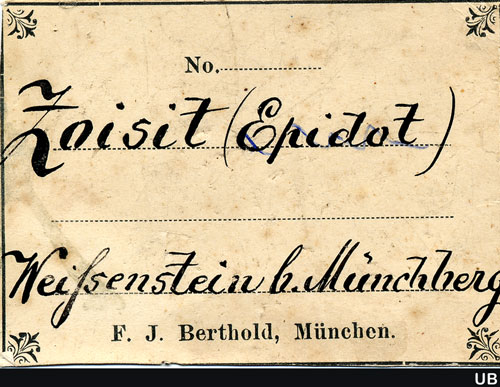 No.
Zoisit (Epidot)
Weißenstein b. Münchberg
F. J. Berthold, München.
UB